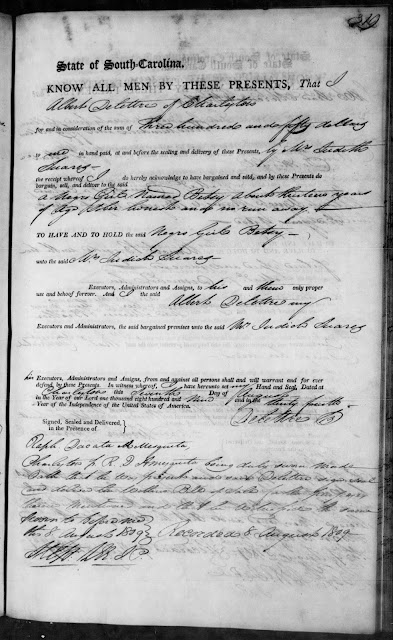 State of South-Carolina.
KNOW ALL MEN BY THESE PRESENTS, That I
Albert Delettre of Charleston
for and in consideration of the sum of Three hundred and fifty dollars
to me in hand paid, at and before the sealing and delivery of these Presents, by Mrs Judith
Suares
the receipt whereof I do hereby acknowledge to have bargained and sold, and by these Presents do
bargain, sell, and deliver to the said
a Negro Girl Named Betsy about thirteen years
of age
TO HAVE AND TO HOLD the said Negro Girl Betsy
unto the said Mrs Judith Suares
Executors, Administrators and Assigns, to his and their only proper
use and behoof forever. And I the said
Albert Delettre my
Executors and Administrators, the said bargained premises unto the said Mrs Judith Suares
her Executors, Administrators and Assigns, from and against all persons shall and will warrant and for ever
defend, by these Presents. In witness whereof, I have hereunto set my Hand and Seal, Dated at
Charleston this Seventh Day of August
in the Year of our Lord one thousand eight hundred and Nine and in the thirty fourth
Year of the Independence of the United States of America.
Delettre
Signed, Sealed and Delivered,
in the Presence of
Ralph Dacosta Mesquita
Charleston R. D. Mesquita being duly sworn Made
Oath that he was present and saw Delettre sign seal
and deliver the within Bill of Sale for the purposes
therein Mentioned and that he the same
Sworn to before me
this 8 August 1809 Recorded 8 August 1809